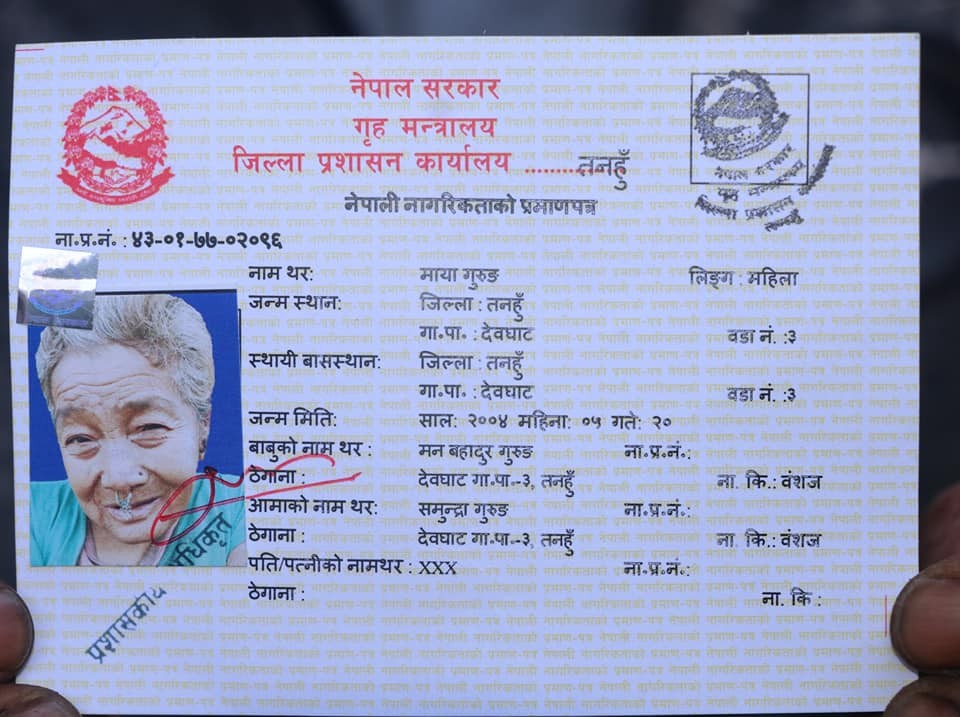 नेपाल सरकार
गृह मन्त्रालय
जिल्ला प्रशासन कार्यालय ..........तनहुँ
नेपाली नागरिकताको प्रमाणपत्र
नेपाल सरकार
गृह मन्त्रालय
जिल्ला प्रशासन कार्यालय
तनहुँ
ना.प्र.नं. : ४३-०१-७७-०२०९६
नाम थर: माया गुरुङ लिङ्ग : महिला
जन्म स्थान: जिल्ला : तनहुँ
गा.पा. : देवघाट वडा नं. :३
स्थायी बासस्थान: जिल्ला : तनहुँ
गा.पा. : देवघाट वडा नं. :३
जन्म मिति: साल: २००४ महिना: ०५ गते: २०
बाबुको नाम थर : मन बहादुर गुरुङ ना.प्र.नं.:
ठेगाना : देवघाट गा.पा.-३, तनहुँ ना. कि.: वंशज
आमाको नाम थर: समुन्द्रा गुरुङ ना.प्र.नं.:
ठेगाना : देवघाट गा.पा.-३, तनहुँ ना. कि.: वंशज
पति/पत्नीको नामथर : XXX ना.प्र.नं.:
ठेगाना : ना. कि :
प्रशासकीय अधिकृत